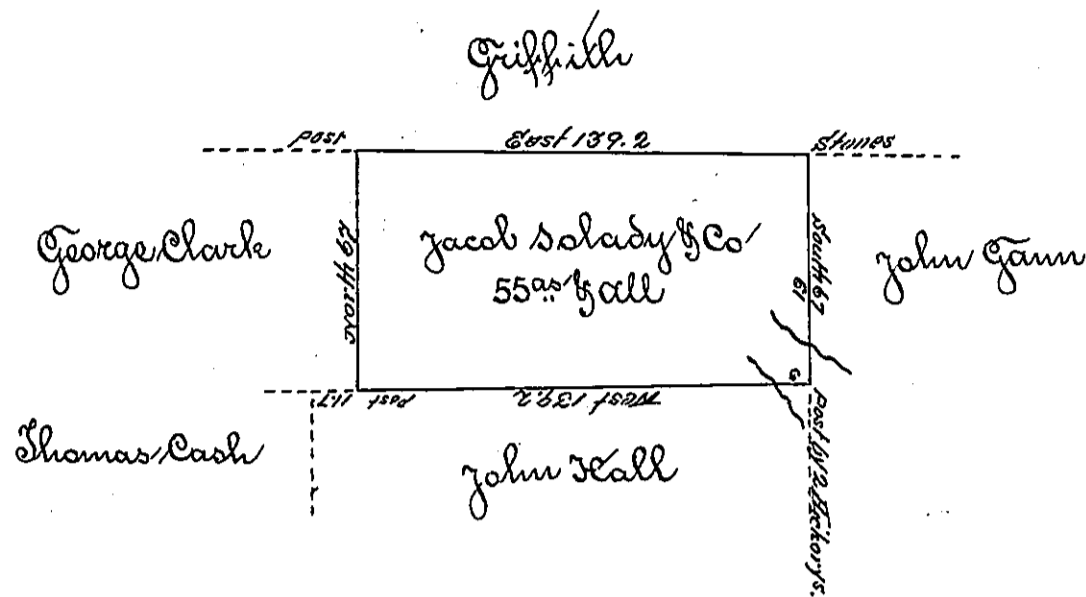 Griffith
Post
East 139.2
Stones
George Clark
North 67
Jacob Solady & Co
55 as & all
South 67
61
6
John Gann
11.7
Post
West 139.2
Post by 2 Hickorys.
Thomas Cash
John Hall